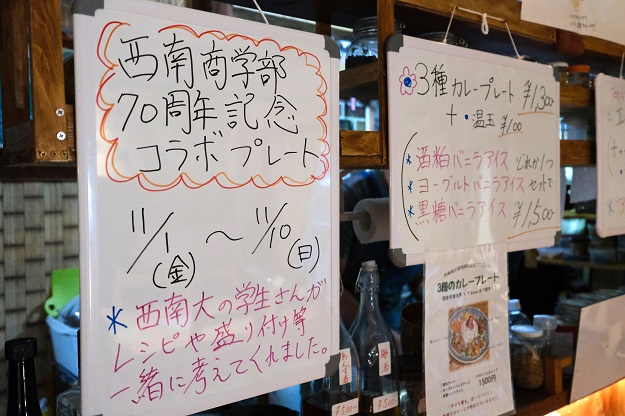 西南商学部
70周年記念
コラボプレート
11/1(金)~11/10(日)
*西南大の学生さんが
レシピや盛り付け等
一緒に考えてくれました。
3種カレープレート ¥1,300
+・温玉 ¥100
*酒粕バニラアイス どれか1つ
*ヨーグルトバニラアイス セットで
*黒糖バニラアイス ¥1,500
3種のカレープレート
1500円